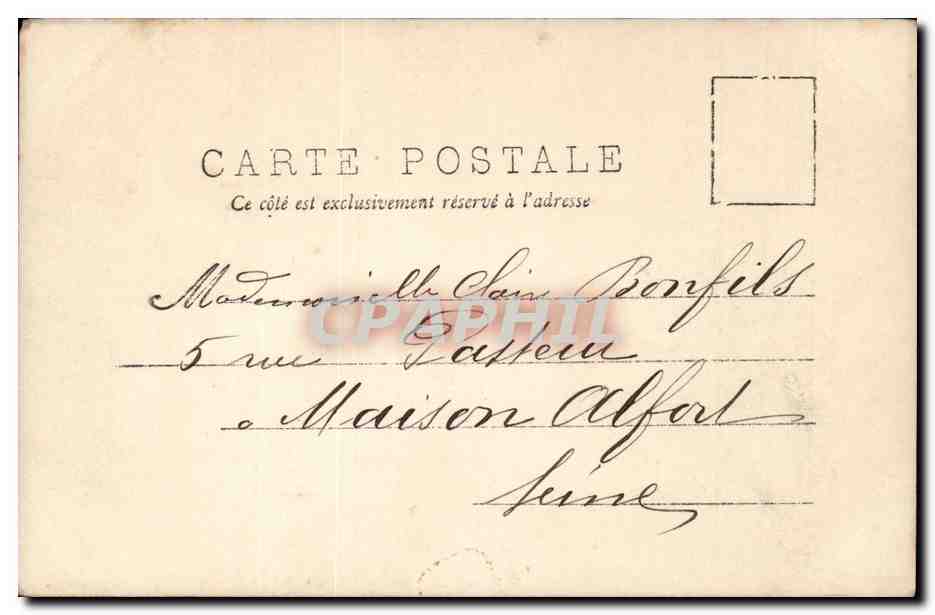 CARTE POSTALE
Ce côté est exclusivement réservé à l'adresse
Mademoiselle Claire Bonfils
CPAPHIL
5 rue Pasteur
à Maison Alfort
Seine